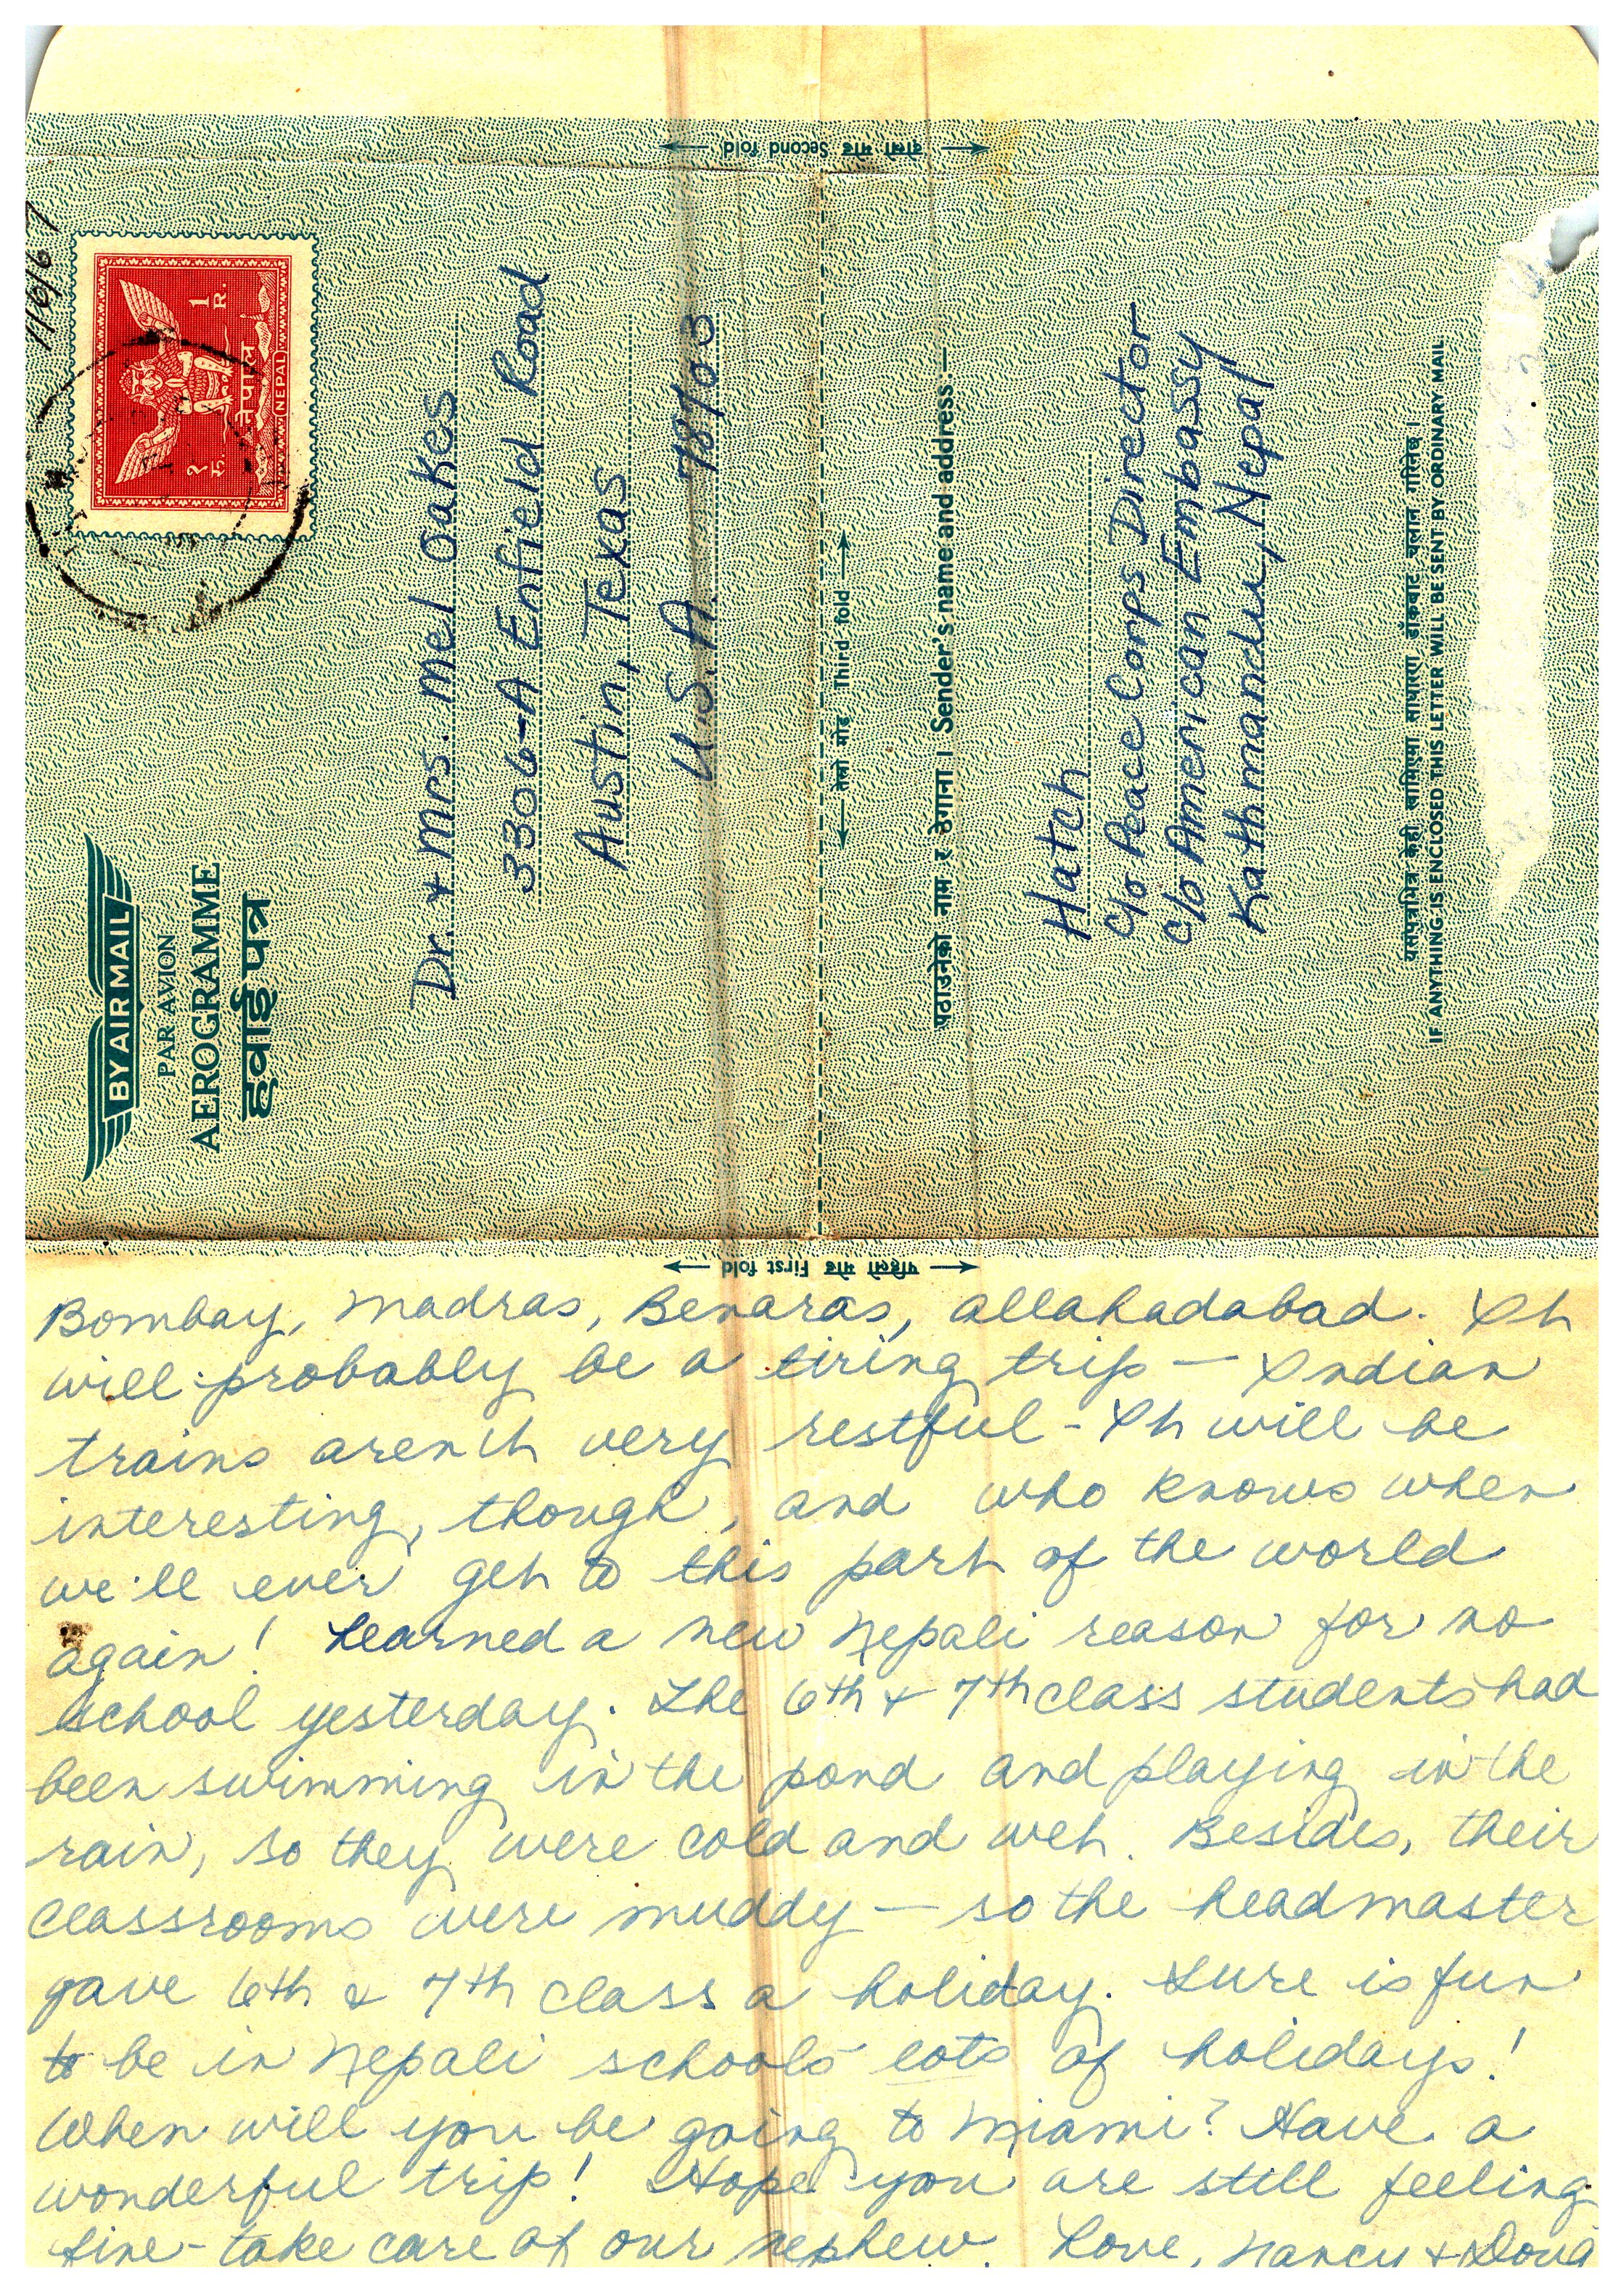 दोस्रो मोड Second fold
7/6/67
१ रु.
1 R.
नेपाल
NEPAL
BY AIR MAIL
PAR AVION
AEROGRAMME
हवाई पत्र
Dr. & Mrs. Mel Oakes
3306-A Enfield Road
Austin, Texas
U.S.A. 78703
तेस्रो मोड Third fold
पठाउनेको नाम र ठेगाना । Sender's name and address :—
Hatch
c/o Peace Corps Director
c/o American Embassy
Kathmandu, Nepal
यसपत्रभित्र केही खामिएमा साधारण डाँकबाट चलान गरिनेछ ।
IF ANYTHING IS ENCLOSED THIS LETTER WILL BE SENT BY ORDINARY MAIL
पहिलो मोड First fold
Bombay, Madras, Benaras, Allahadabad. It
will probably be a tiring trip — Indian
trains aren't very restful - It will be
interesting, though, and who knows when
we'll ever get to this part of the world
again! Learned a new Nepali reason for no
school yesterday. The 6th & 7th class students had
been swimming in the pond and playing in the
rain, so they were cold and wet. Besides, their
classrooms were muddy — so the headmaster
gave 6th & 7th class a holiday. Sure is fun
to be in Nepali schools lots of holidays!
When will you be going to Miami? Have a
wonderful trip! Hope you are still feeling
fine - take care of our nephew. Love, Nancy & Doug